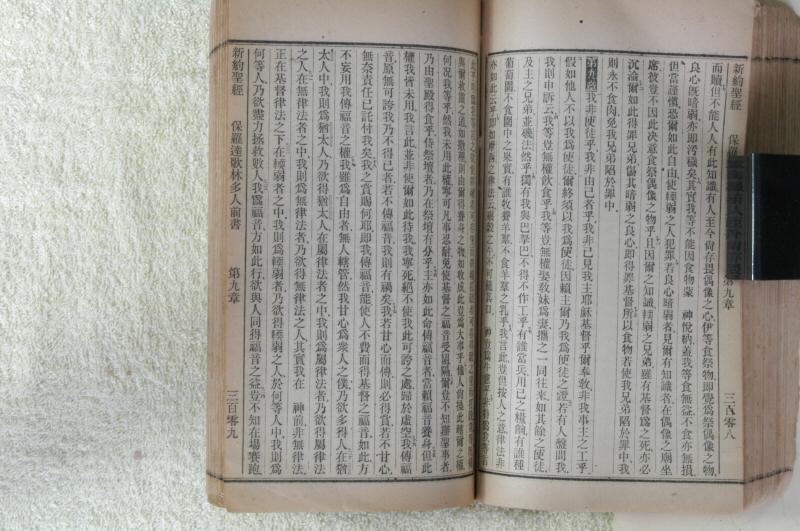 新約聖經 保羅達歌林多人前書 第九章 三百零八
而贖但不能人人有此知識有人至今尙存畏偶像之心伊等食祭物即覺爲祭偶像之物
良心旣暗弱亦即滂穢矣其實我等不能因食物蒙 神悅納蓋我等食無益不食亦無損
但當謹愼恐爾如此自由使輭弱之人犯罪若良心暗弱者見爾有知識者在偶像之廟坐
席彼豈不因此決意食祭偶像之物乎且因爾之知識輭弱之兄弟雖有基督爲之死亦必
沉淪爾如此得罪兄弟傷其暗弱之良心即得罪基督所以食物若使我兄弟陷於罪中我
則永不食肉免我兄弟陷於罪中
第九章 我非使徒乎我非由己者乎我非已見我主耶穌基督乎爾奉敎非我事主之工乎
假如他人不以我爲使徒爾終須以我爲使徒因賴主爾乃我爲使徒之證若有人盤問我
我則申訴云我等豈無權飲食乎我等豈無權娶敎妹爲妻攜之一同往來如其餘之使徒
及主之兄弟並磯法然乎獨有我與巴拏巴不得不作工乎有誰當兵用己之糧餉有誰種
葡萄園不食園中之果實有誰牧養羊羣不食羊羣之乳乎我言此豈但按人之意律法非
亦如此云乎即如摩西之律法云
與爾收
何況我等乎然我未用此權寧可凡事忍耐免使基督之福音受間隔爾豈不知諸聖事者
乃由聖殿得食乎侍祭壇者乃在祭壇有分乎主亦如此命傳福音者當賴福音養身但此
權我皆未用我言此並非使爾如此待我我寧死絕不使我此可誇之處歸於虛空我傳福
音原無可誇我乃不得已者若不傳福音我則有禍矣我若甘心而傳則必得賞若不甘心
無奈責任已託付我矣我之賞賜何耶即我傳福音能使人不費而得基督之福音如此方
不妄用我傳福音之權我雖爲自由者無人轄管然我甘心爲衆人之僕乃欲多得人在猶
太人中我則爲猶太人乃欲得猶太人在屬律法者之中我則爲屬律法者乃欲得屬律法
之人在無律法者之中我則爲無律法者乃欲得無律法之人其實我在 神前非無律法
正在基督律法之下在輭弱者之中我則爲輭弱者乃欲得輭弱之人於何等人中我則爲
何等人乃欲盡力拯救數人我爲福音方如此行欲與人同得福音之益豈不知在場賽跑
新約聖經 保羅達歌林多人前書 第九章 三百零九